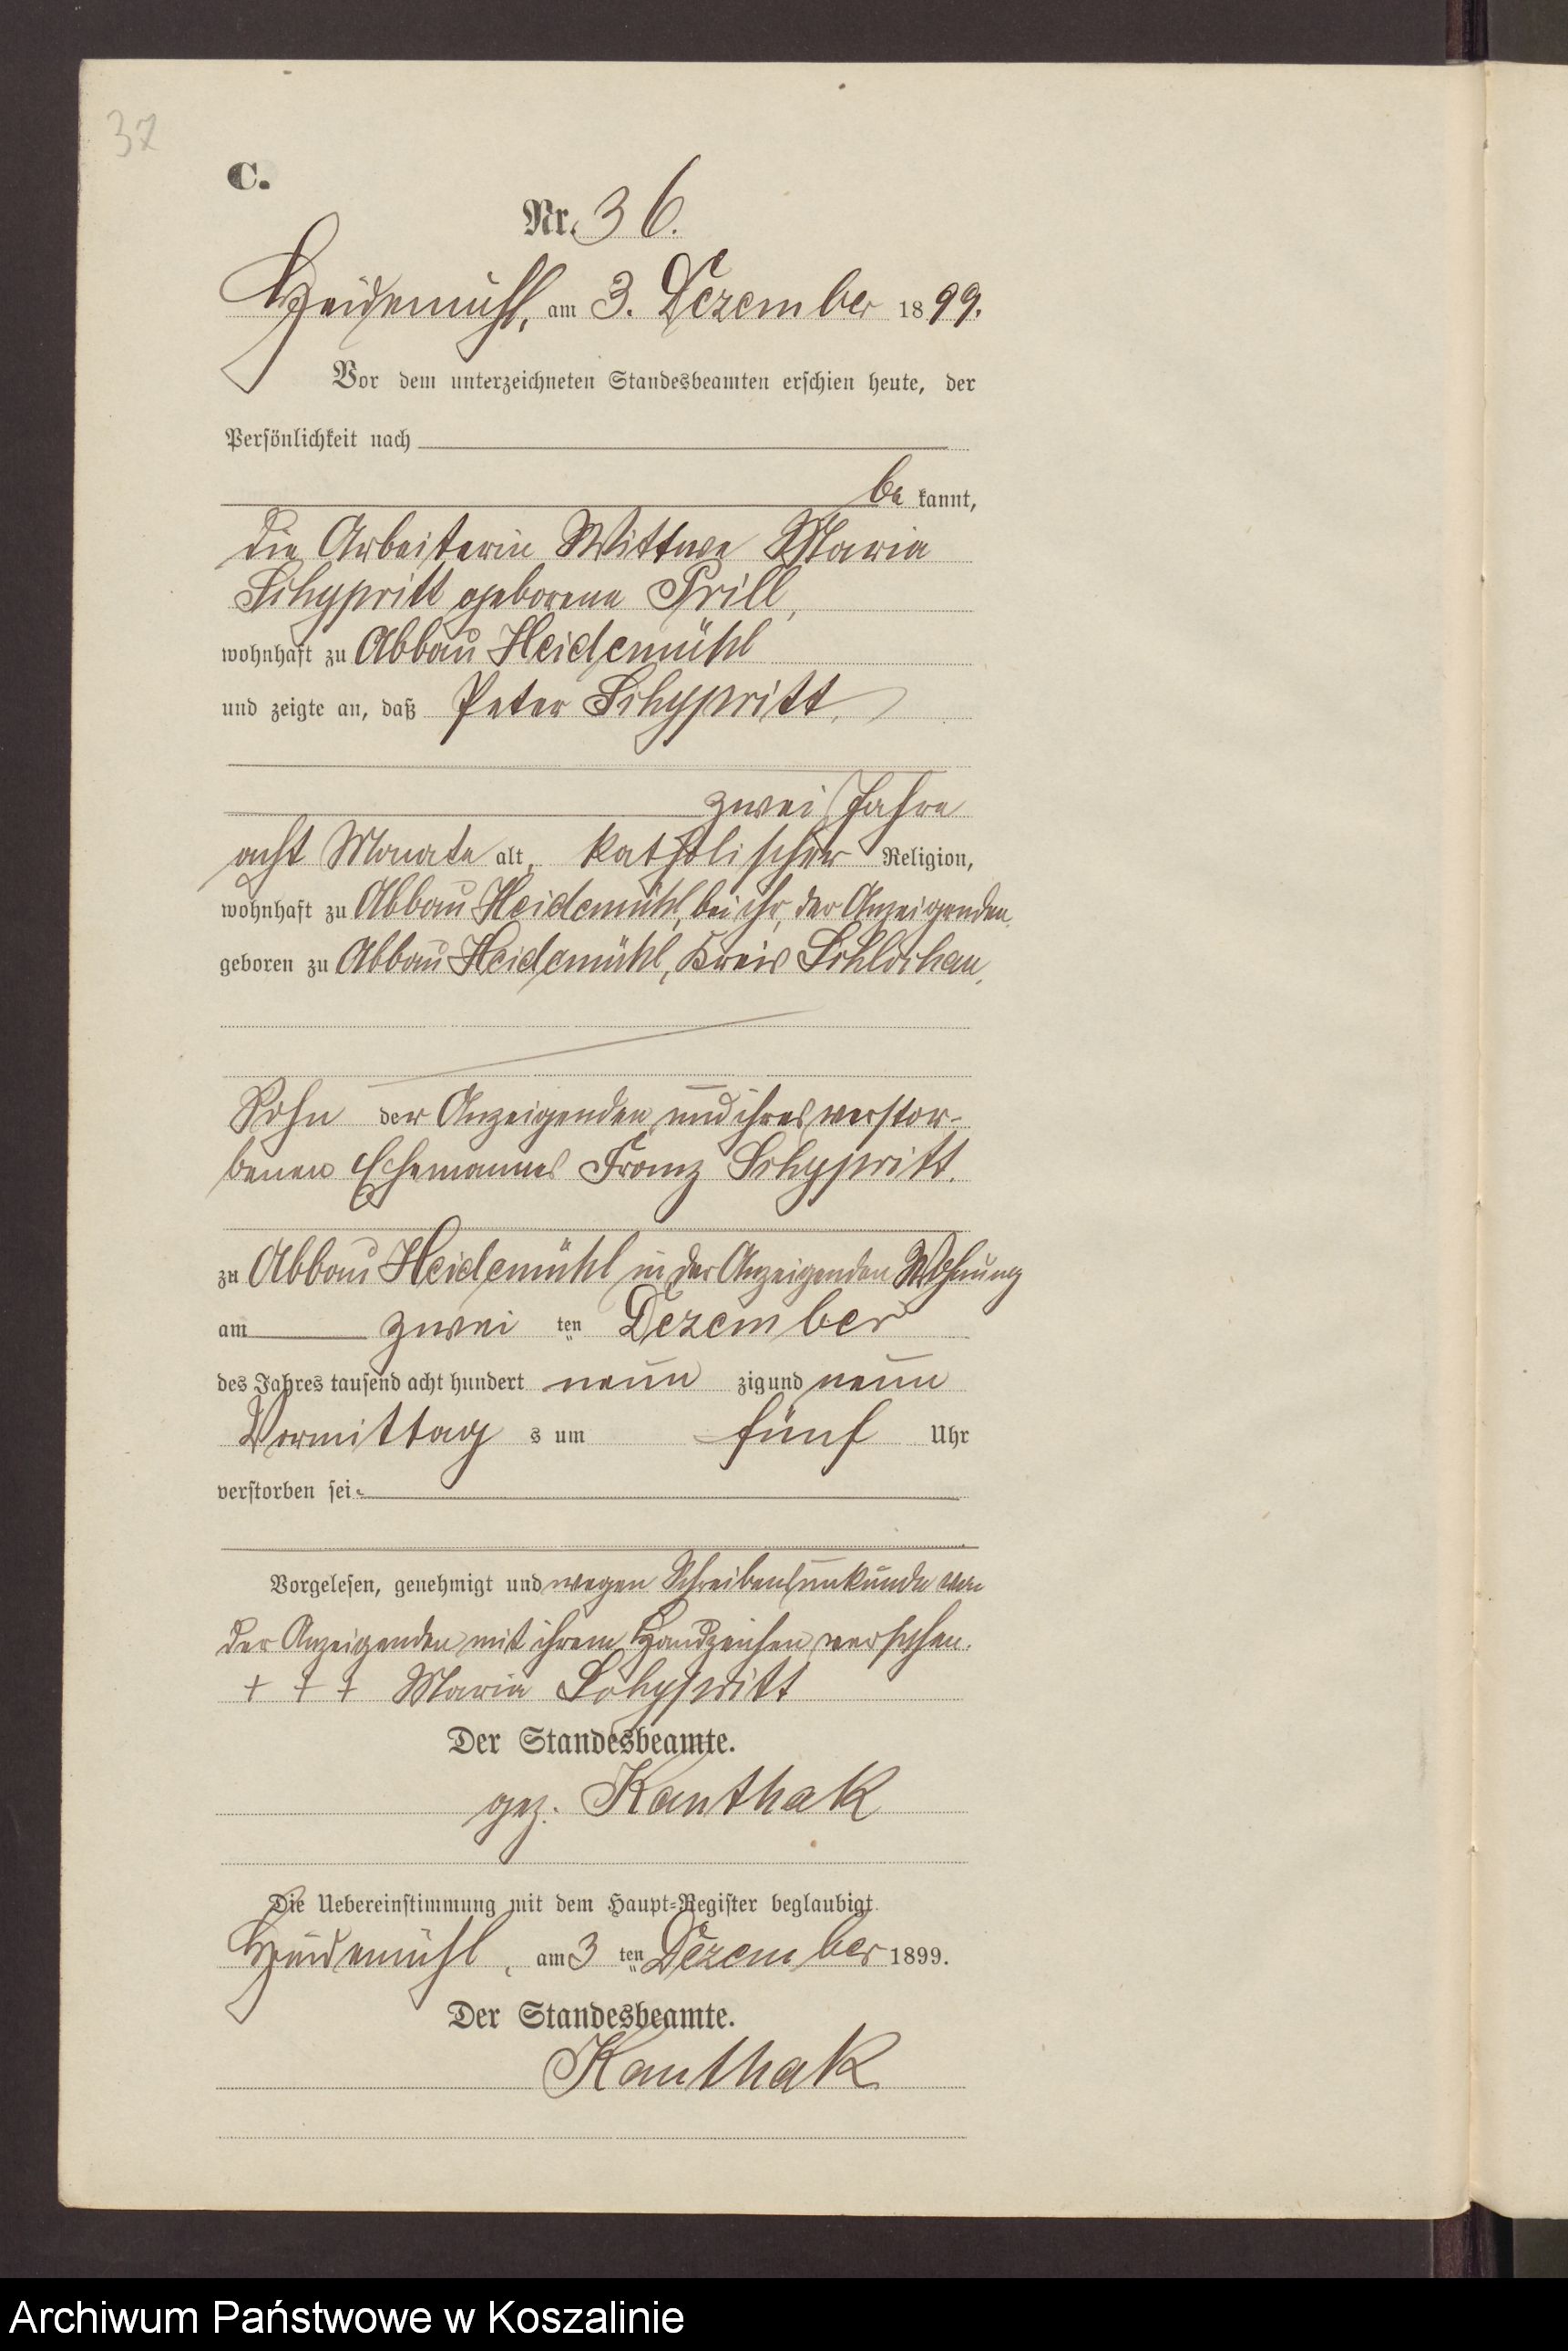 37
C.
Nr. 36.
Heidemühl, am 3. Dezember 1899.
Vor dem unterzeichneten Standesbeamten erschien heute, der
Persönlichkeit nach
be kannt,
die Arbeiterin Wittwe Maria
Schypritt geborene Prill,
wohnhaft zu Abbau Heidemühl
und zeigte an, daß Peter Schypritt,
zwei Jahre
acht Monate alt, katholischer Religion,
wohnhaft zu Abbau Heidemühl, bei ihr, der Anzeigenden,
geboren zu Abbau Heidemühl, Kreis Schlochau,
Sohn der Anzeigenden und ihres verstor-
benen Ehemannes Franz Schypritt.
zu Abbau Heidemühl in der Anzeigenden Wohnung
am zwei ten Dezember
des Jahres tausend acht hundert neun zig und neun
Vormittag s um fünf Uhr
verstorben sei.
Vorgelesen, genehmigt und wegen Schreibensunkunde von
der Anzeigenden mit ihrem Handzeichen versehen.
+ + + Maria Schypritt
Der Standesbeamte.
gez. Kanthak
Die Uebereinstimmung mit dem Haupt-Register beglaubigt
Heidemühl, am 3 ten Dezember 1899.
Der Standesbeamte.
Kanthak
Archiwum Państwowe w Koszalinie